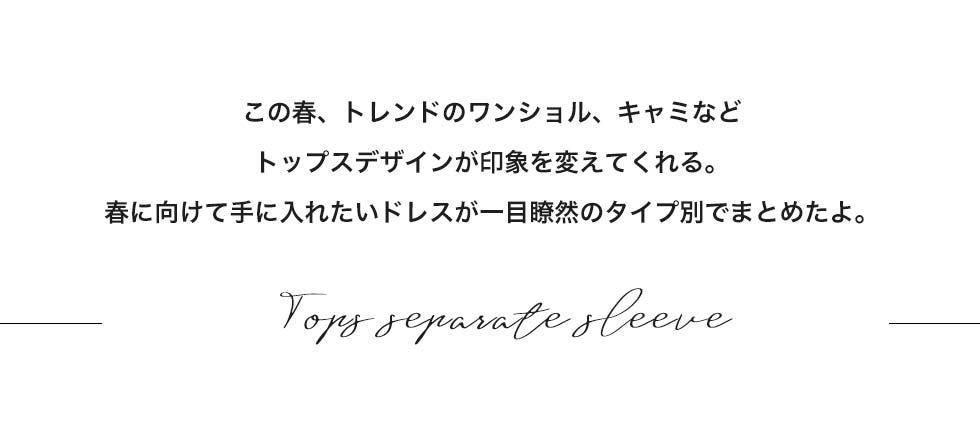 この春、トレンドのワンショル、キャミなど
トップスデザインが印象を変えてくれる。
春に向けて手に入れたいドレスが一目瞭然のタイプ別でまとめたよ。
Tops separate sleeve